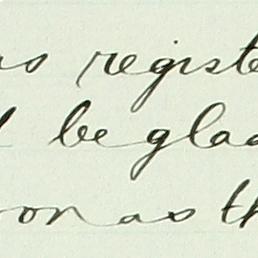 as registe
be glad
on as th